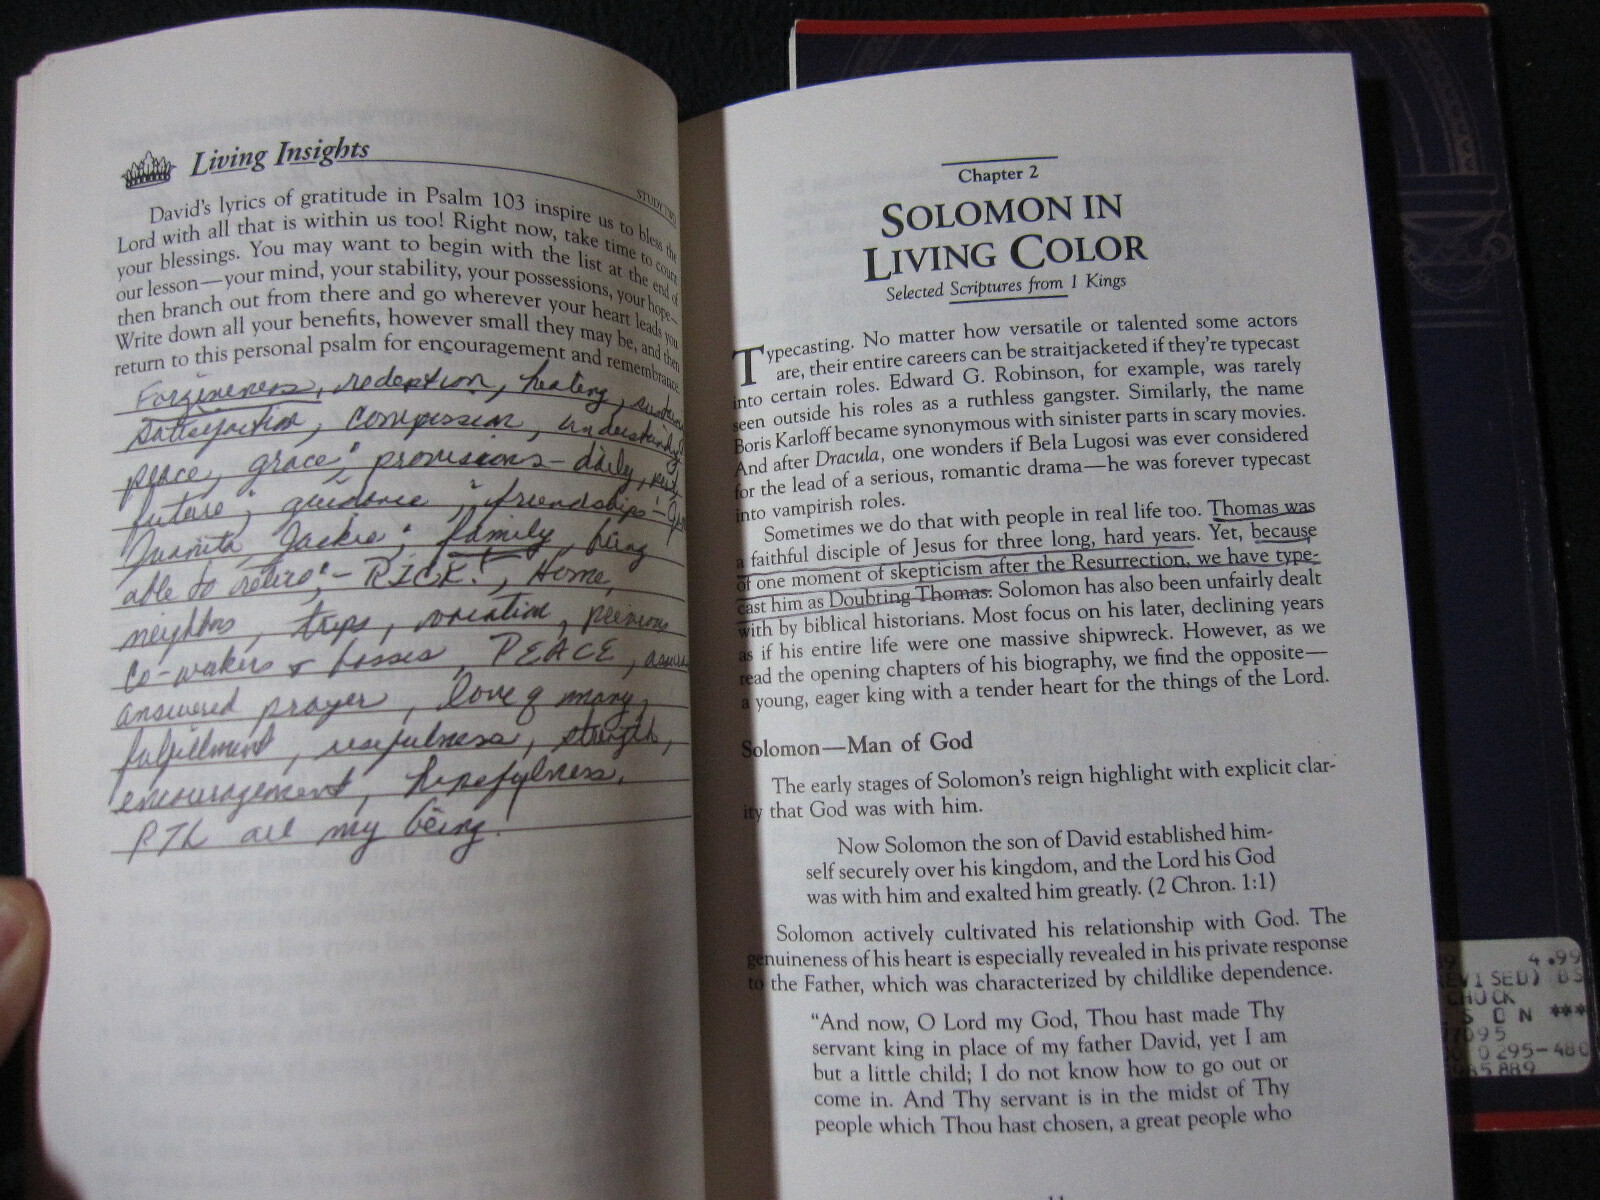 Living Insights
STUDY TWO
David's lyrics of gratitude in Psalm 103 inspire us to bless the
Lord with all that is within us too! Right now, take time to count
your blessings. You may want to begin with the list at the end of
our lesson—your mind, your stability, your possessions, your hope—
then branch out from there and go wherever your heart leads you
Write down all your benefits, however small they may be, and then
return to this personal psalm for encouragement and remembrance.
Forgiveness, redeption, healing,
Satisfaction, compassion, understanding
peace, grace; provisions - daily, past,
future; guidance; friendships -
Juanita, Jackie; family, being
able to retire! - RICK!, Home,
neighbors, trips, vacation, previous
co-wakers & bosses, PEACE,
answered prayer, love of many,
fulfillment, usefulness, strength,
encouragement, hopefulness.
PTL all my being!
Chapter 2
SOLOMON IN
LIVING COLOR
Selected Scriptures from 1 Kings
Typecasting. No matter how versatile or talented some actors
are, their entire careers can be straitjacketed if they're typecast
into certain roles. Edward G. Robinson, for example, was rarely
seen outside his roles as a ruthless gangster. Similarly, the name
Boris Karloff became synonymous with sinister parts in scary movies.
And after Dracula, one wonders if Bela Lugosi was ever considered
for the lead of a serious, romantic drama—he was forever typecast
into vampirish roles.
Sometimes we do that with people in real life too. Thomas was
a faithful disciple of Jesus for three long, hard years. Yet, because
of one moment of skepticism after the Resurrection, we have type-
cast him as Doubting Thomas. Solomon has also been unfairly dealt
with by biblical historians. Most focus on his later, declining years
as if his entire life were one massive shipwreck. However, as we
read the opening chapters of his biography, we find the opposite—
a young, eager king with a tender heart for the things of the Lord.
Solomon—Man of God
The early stages of Solomon's reign highlight with explicit clar-
ity that God was with him.
Now Solomon the son of David established him-
self securely over his kingdom, and the Lord his God
was with him and exalted him greatly. (2 Chron. 1:1)
Solomon actively cultivated his relationship with God. The
genuineness of his heart is especially revealed in his private response
to the Father, which was characterized by childlike dependence.
"And now, O Lord my God, Thou hast made Thy
servant king in place of my father David, yet I am
but a little child; I do not know how to go out or
come in. And Thy servant is in the midst of Thy
people which Thou hast chosen, a great people who
4.99
EVISED) BS
CHUCK
S O N ***
7095
0295-480
85889